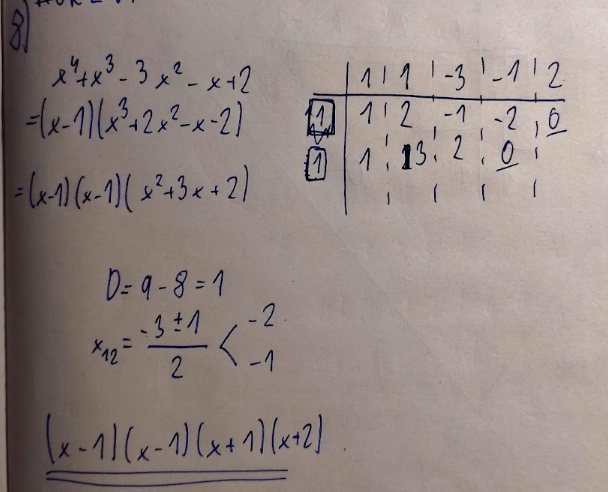 8)
x⁴+x³-3x²-x+2
=(x-1)(x³+2x²-x-2)
=(x-1)(x-1)(x²+3x+2)
1 1 -3 -1 2
1 1 2 -1 -2 0
1 1 3 2 0
D=9-8=1
x₁₂= (-3±1)/2 < -2
-1
(x-1)(x-1)(x+1)(x+2)